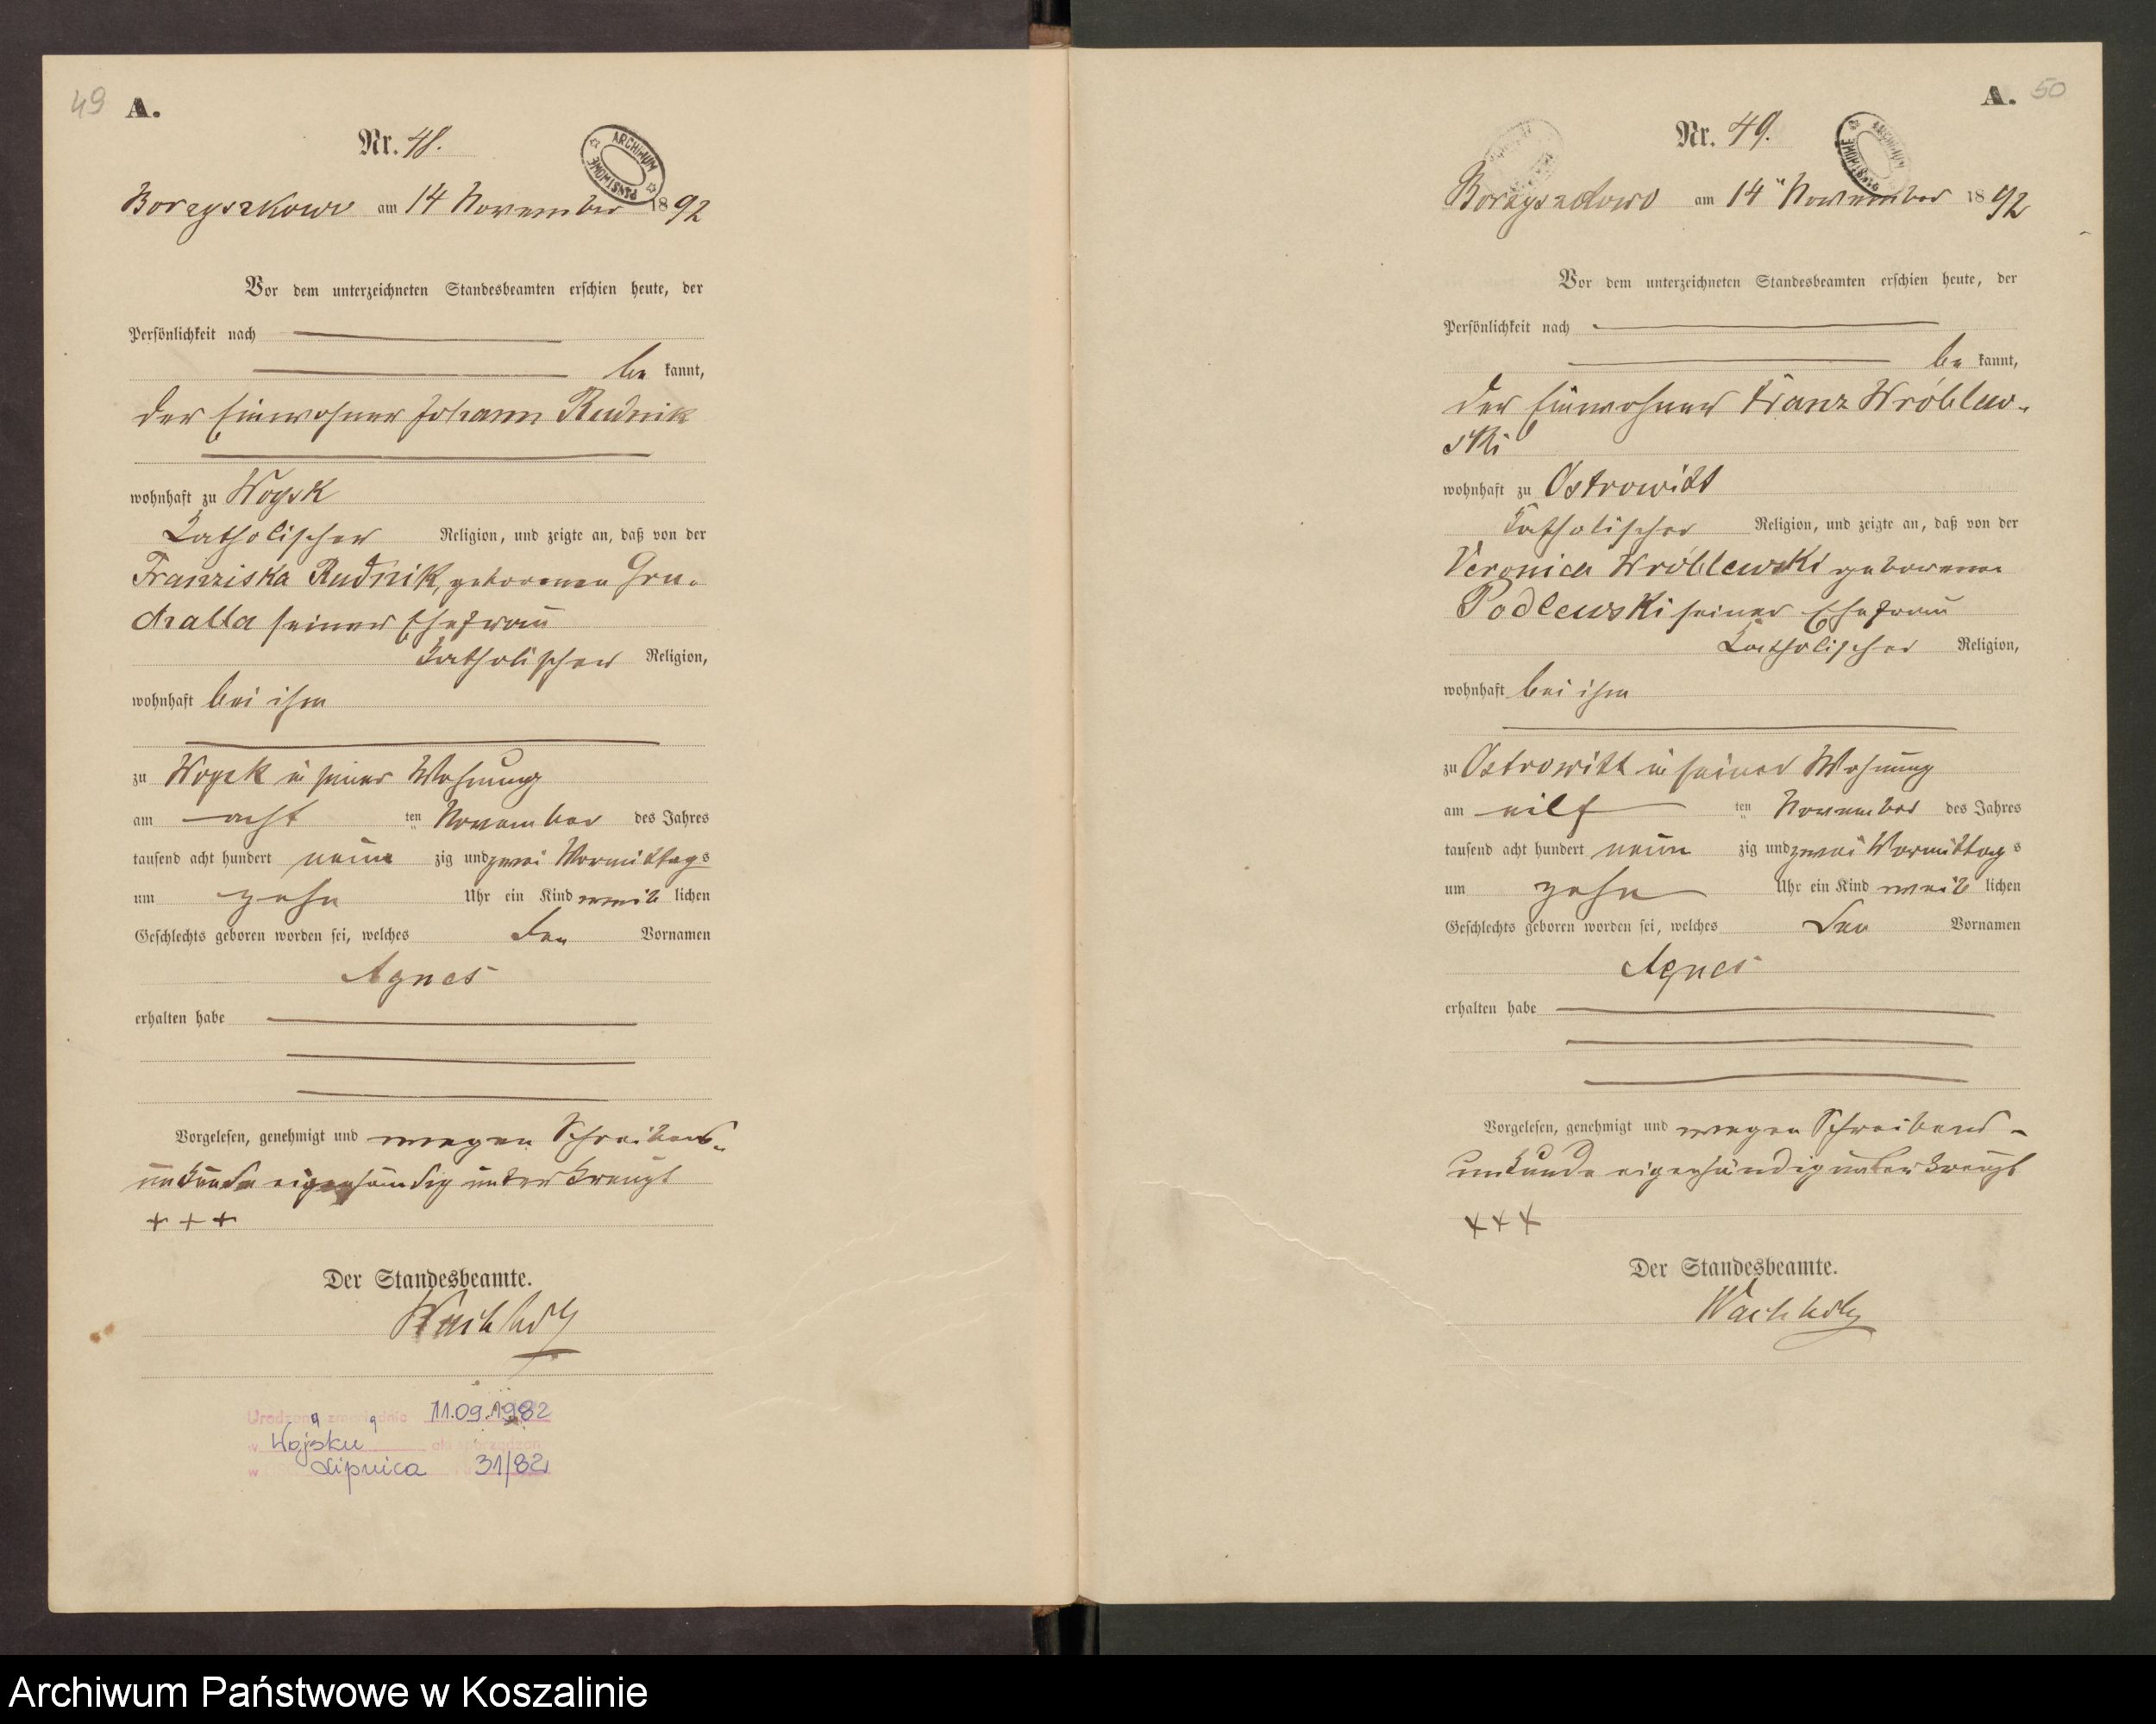 49 A.
Nr. 48.
ARCHIWUM PAŃSTWOWE
Borzyszkowo am 14 November 1892
Vor dem unterzeichneten Standesbeamten erschien heute, der
Persönlichkeit nach
be kannt,
der Einwohner Johann Rudnik
wohnhaft zu Woysk
katholischer Religion, und zeigte an, daß von der
Franziska Rudnik, geborenen
seiner Ehefrau
katholischer Religion,
wohnhaft bei ihm
zu Woysk in seiner Wohnung
am acht ten November des Jahres
tausend acht hundert neun zig und zwei Vormittags
um zehn Uhr ein Kind weib lichen
Geschlechts geboren worden sei, welches den Vornamen
Agnes
erhalten habe
Vorgelesen, genehmigt und wegen Schreibens-
unkunde eigenhändig unterkreuzt
+ + +
Der Standesbeamte.
Wachholz
Urodzona zmarła dnia 11.09.1982
w Wojsku akt sporządzono
w Lipnica 31/82
A. 50
Nr. 49.
ARCHIWUM PAŃSTWOWE
Borzyszkowo am 14 November 1892
Vor dem unterzeichneten Standesbeamten erschien heute, der
Persönlichkeit nach
be kannt,
der Einwohner Franz Wróblew-
ski
wohnhaft zu Ostrowitt
katholischer Religion, und zeigte an, daß von der
Veronica Wróblewski geborenen
Podlewski seiner Ehefrau
katholischer Religion,
wohnhaft bei ihm
zu Ostrowitt in seiner Wohnung
am eilf ten November des Jahres
tausend acht hundert neun zig und zwei Vormittags
um zehn Uhr ein Kind weib lichen
Geschlechts geboren worden sei, welches den Vornamen
Agnes
erhalten habe
Vorgelesen, genehmigt und wegen Schreibens-
unkunde eigenhändig unterkreuzt
+ + +
Der Standesbeamte.
Wachholz
Archiwum Państwowe w Koszalinie